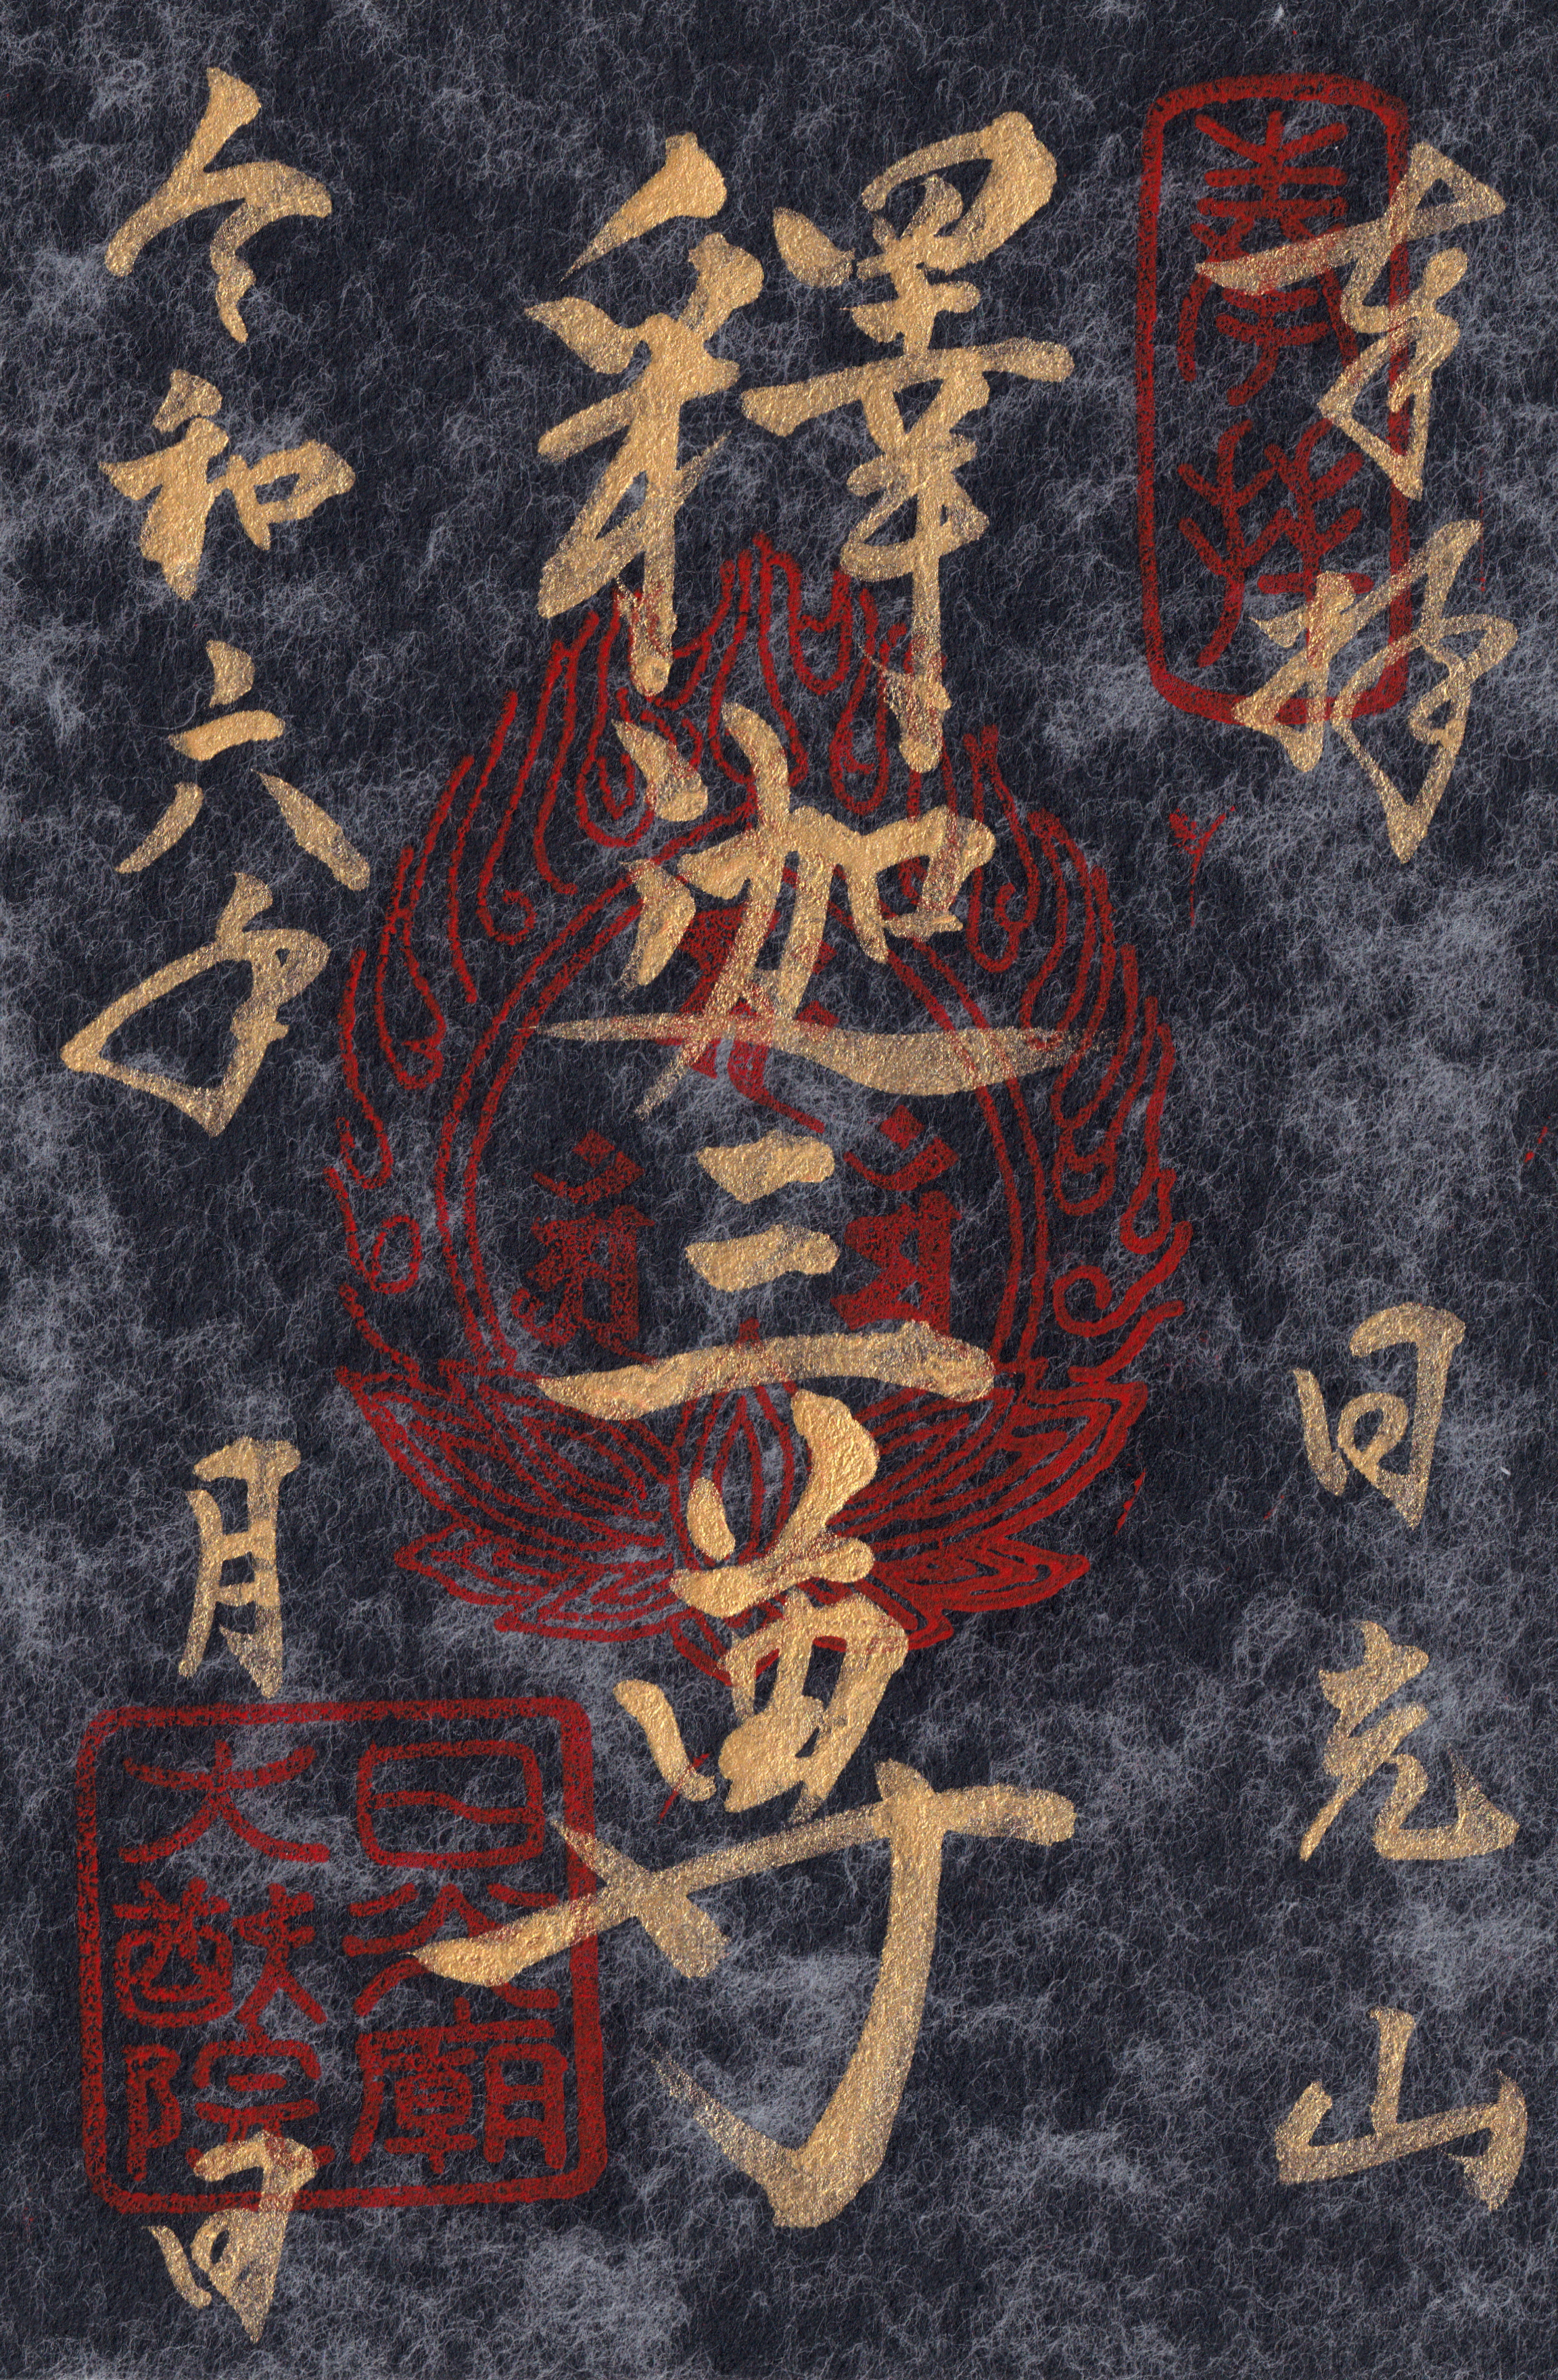 奉拝
日光山
奉拝
釋迦三尊
令和六年 月 日
日光廟
大猷院